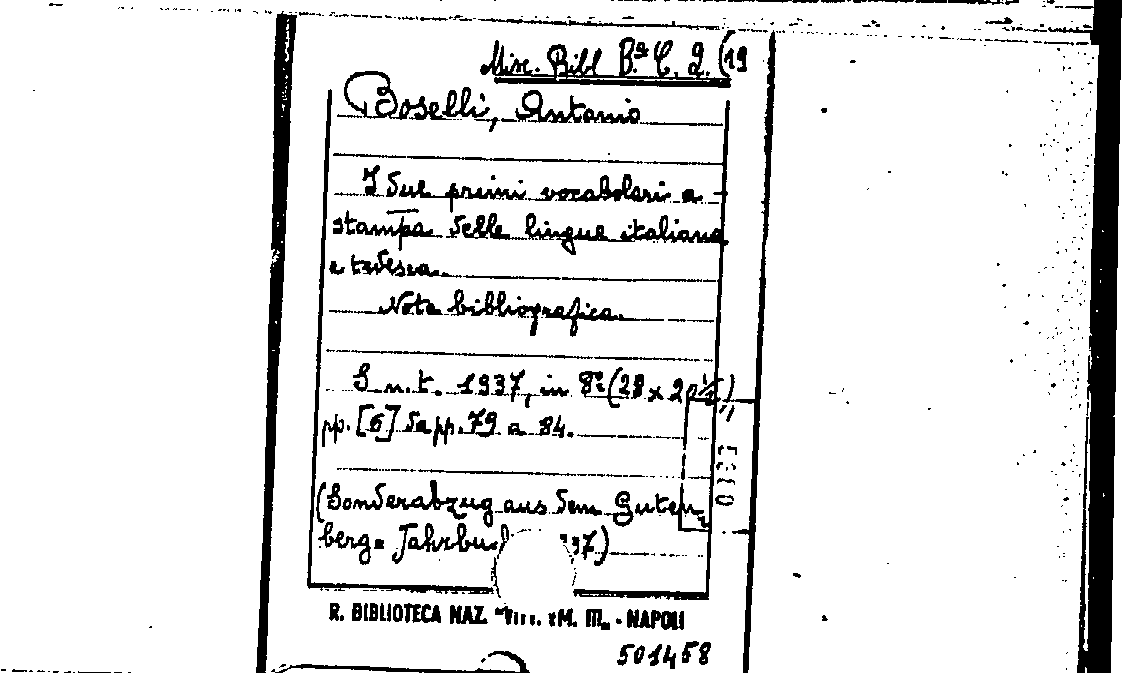 Misc. Bibl Bª C. 2. (19
Boselli, Antonio
I due primi vocabolari a
stampa delle lingue italiana
e tedesca.
Nota bibliografica.
S n. t. 1937, in 8º (28 x 20 ½)
pp. [6] da pp. 79 a 84.
(Sonderabzug aus dem Guten-
berg= Jahrbuch 37)
R. BIBLIOTECA NAZ. M. III. - NAPOLI
501458